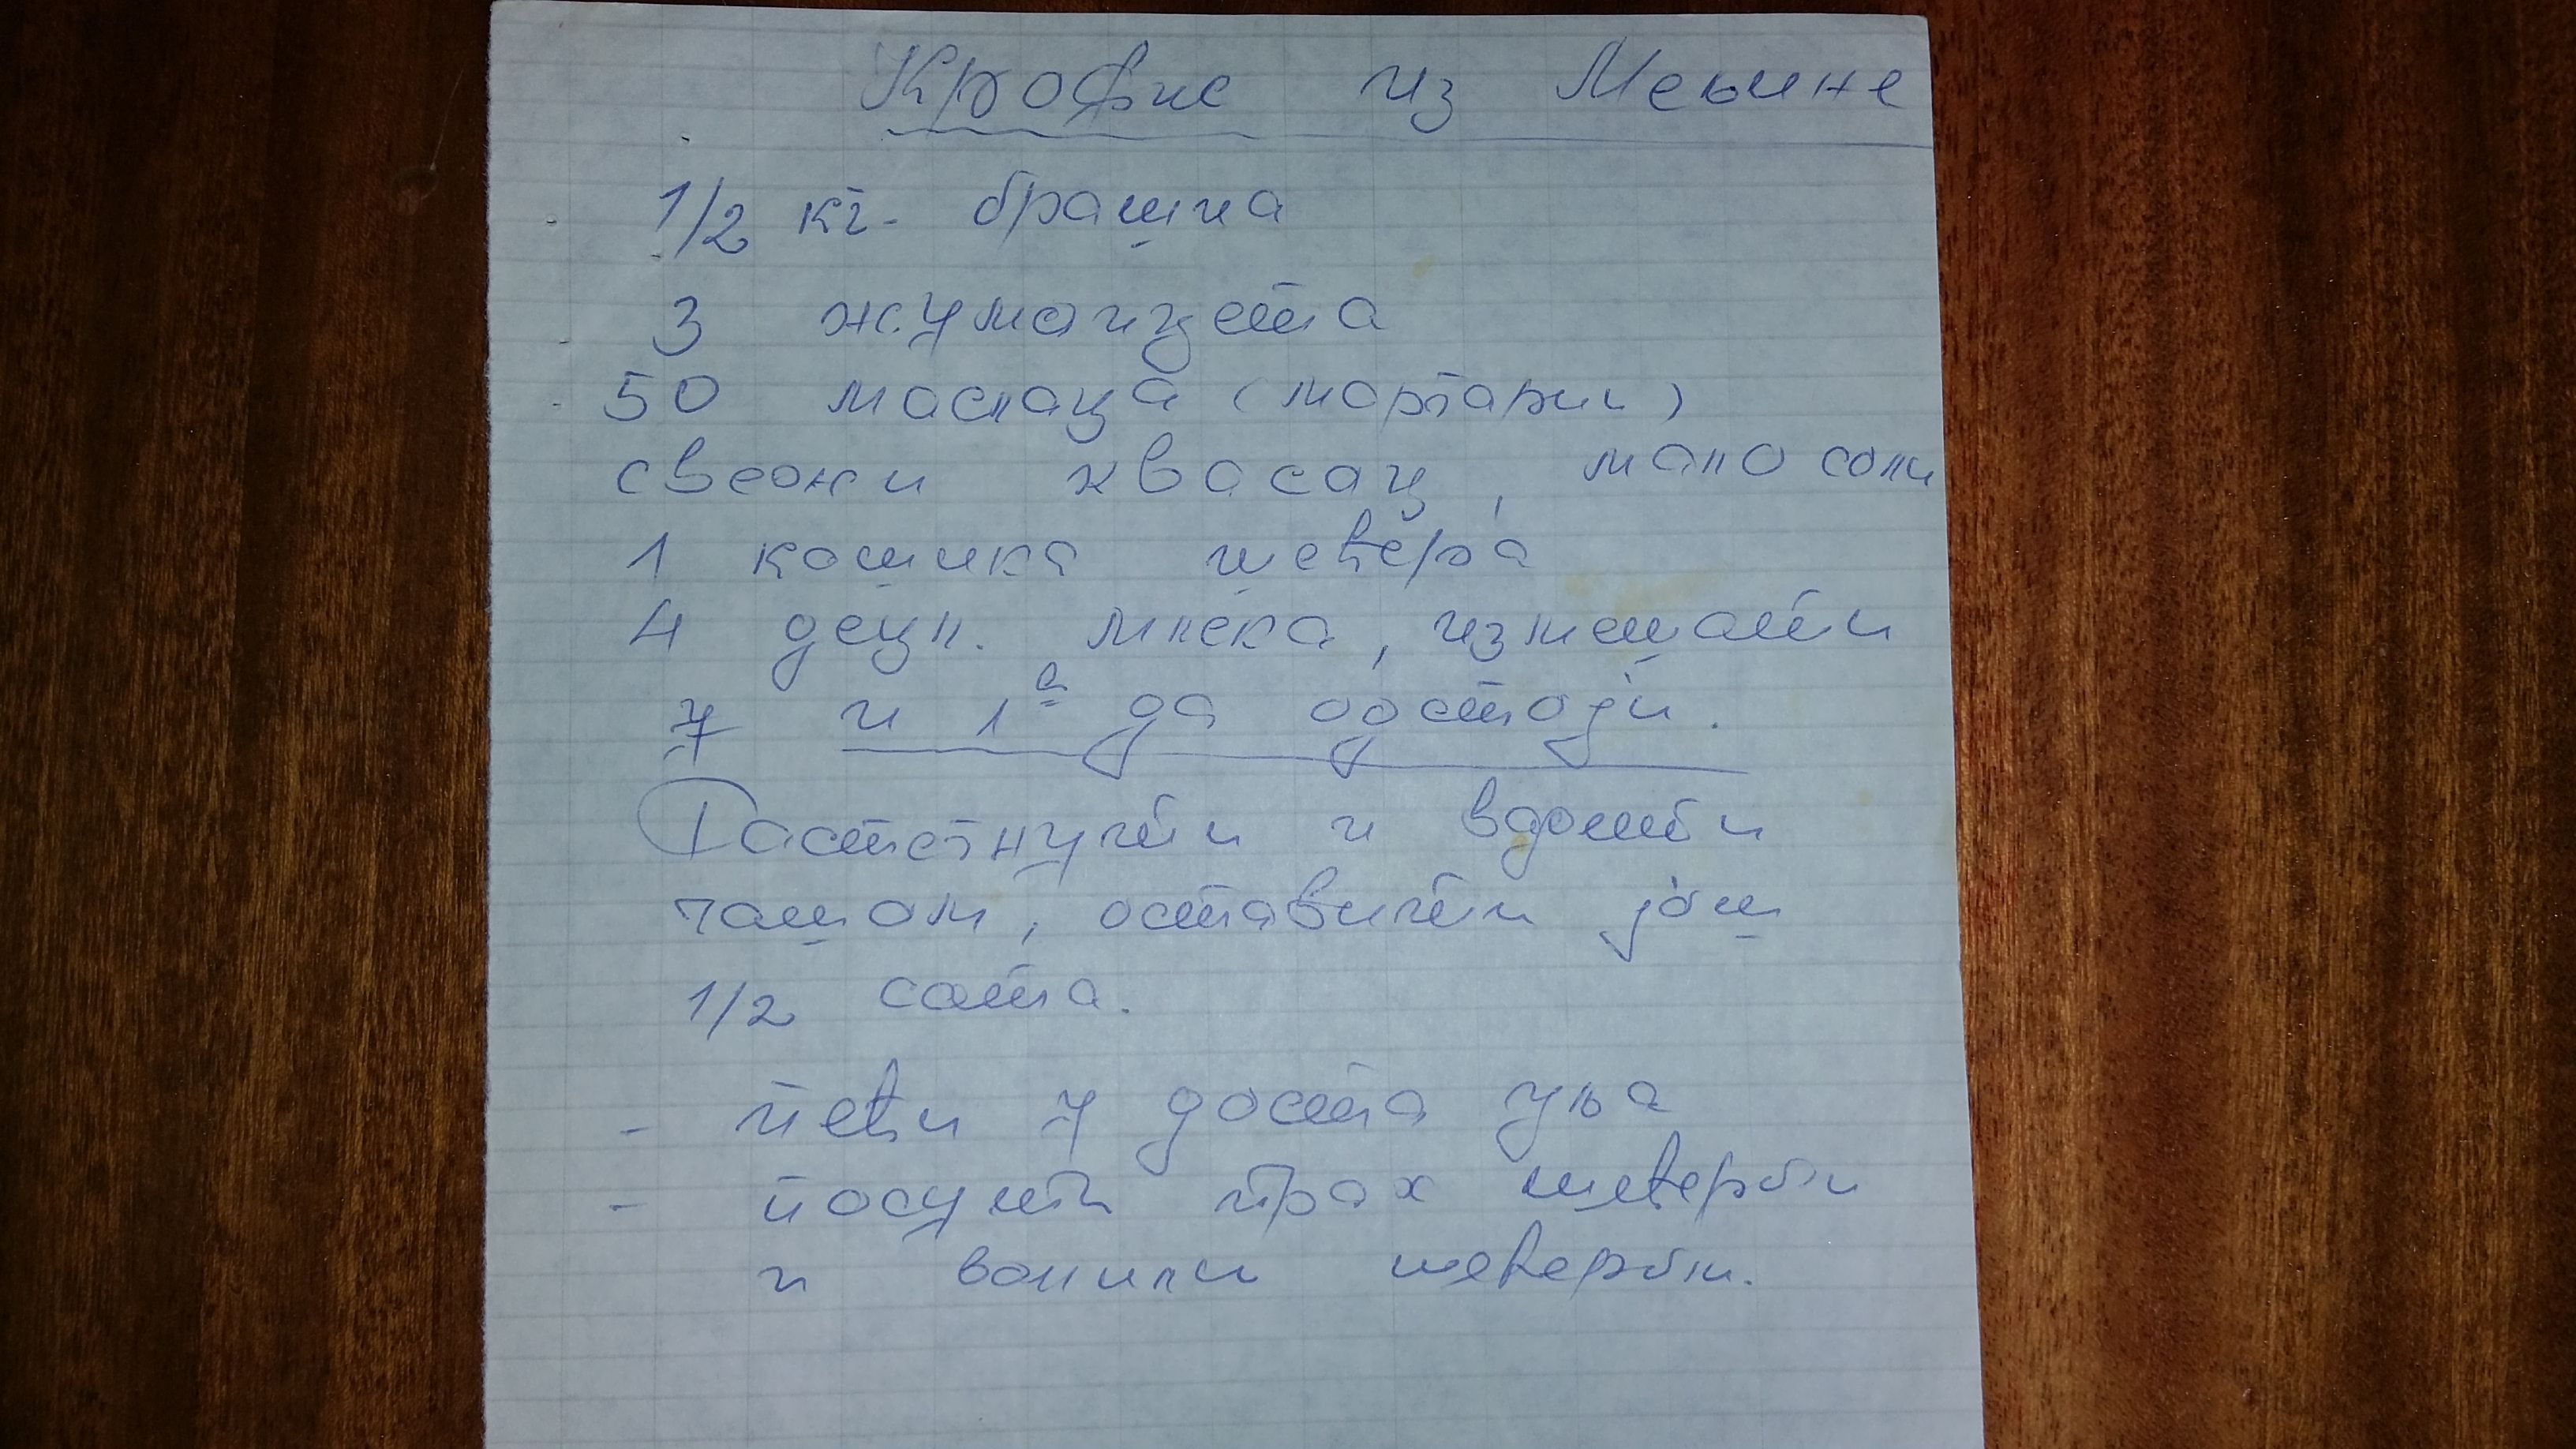 Крофне из Меьине
1/2 кг. брашна
3 жуманцета
50 маслаца (маргарин)
свежи квасац, мало соли
1 кашика шећера
4 децл. млека, измешати
7 и 1ª да одстоји.
Растегнути и вдити
чашом, оставити још
1/2 сата.
- пећи у доста уља
- посути прах шећером
и ванили шећером.